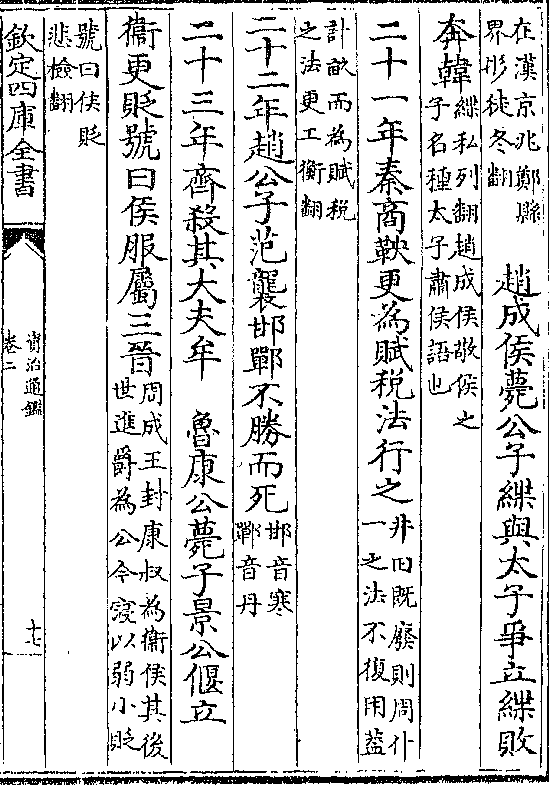 在漢京兆鄭縣
界彤徒冬翻
趙成侯薨公子緤與太子爭立緤敗
奔韓
緤私列翻趙成侯敬侯之
子名種太子肅侯語也
二十一年秦商鞅更為賦稅法行之
井田既廢則周什
一之法不復用蓋
計畝而為賦稅
之法更工衡翻
二十二年趙公子范襲邯鄲不勝而死
邯音寒
鄲音丹
二十三年齊殺其大夫牟　魯康公薨子景公偃立
衞更貶號曰侯服屬三晉
周成王封康叔為衞侯其後
世進爵為公今寖以弱小貶
號曰侯貶
悲檢翻
欽定四庫全書
資治通鑑
卷二
十七